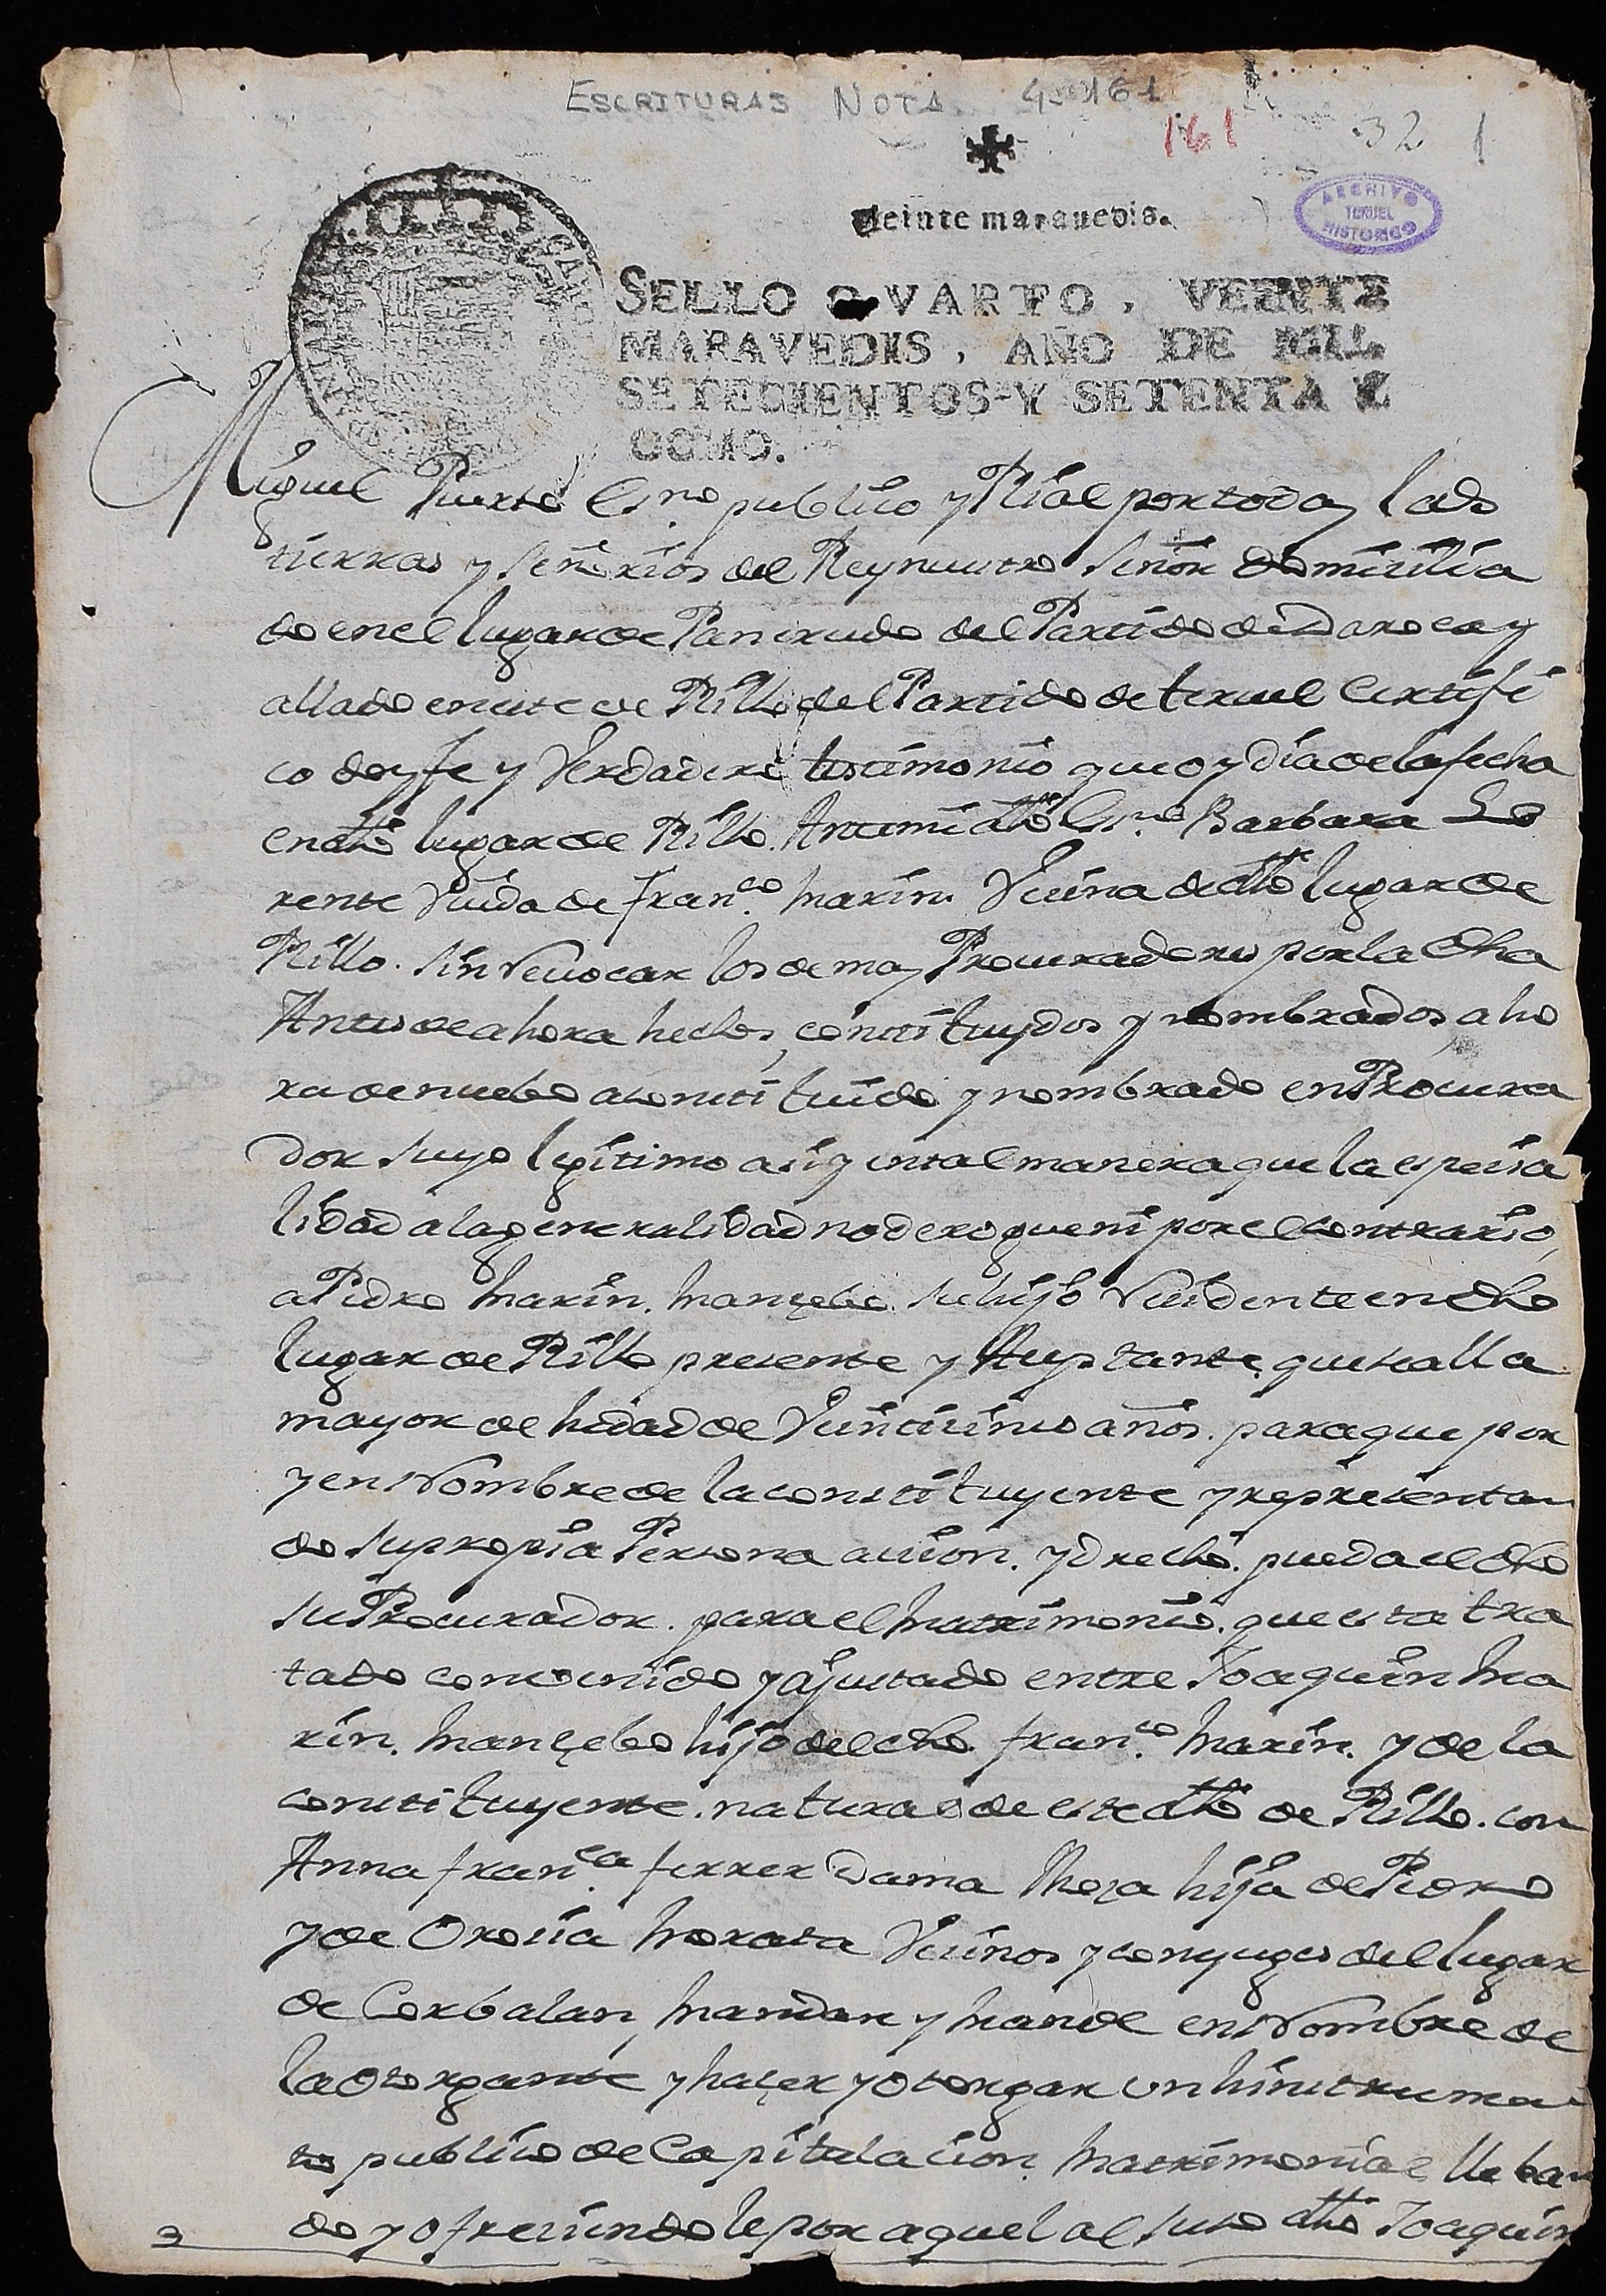 ESCRITURAS NOTA 4-161
161 32 1
ARCHIVO
TERUEL
HISTORICO
Veinte marauedis.
SELLO QVARTO, VEINTE
MARAVEDIS, AÑO DE MIL
SETECIENTOS Y SETENTA Y
OCHO.
Miguel Puerto Esno publico y Rial por toda las
tierras y señorios del Rey nuestro Señor domicilia
do en el lugar de Pancrudo del Partido de Daroca y
allado en este de Rillo del Partido de teruel Certifi
co doy fe y Verdadero testimonio que oy dia de la fecha
en dho lugar de Rillo. Antemi dho Esno Barbara Lo
rente Viuda de Franco Marin Vecina de dho lugar de
Rillo. sin Revocar los demas Procuradores por la dha
Antes de ahora hechos, constituydos y nombrados aho
ra de nuebo a constituido y nombrado en Procura
dor suyo lexitimo asi y en tal manera que la especia
lidad a la generalidad no derogue ni por el contrario,
a Pedro Marin. Mançebo. su hijo Residente en dho
lugar de Rillo presente y Aceptante. que se alla
mayor de hedad de Veinticinco años. para que por
y en Nombre de la constituyente y representan
do su propia Persona accion. y drecho. pueda el dho
su Procurador. para el Matrimonio. que esta tra
tado convenido y ajustado entre Joaquin Ma
rin. Mançebo hijo del dho. Franco Marin. y de la
constituyente. natural de este dho de Rillo. con
Anna Franca ferrer Dama Moza hija de Pedro
y de Orosia Morata Vecinos y conyuges del lugar
de Corbalan, Mandar y Mande en Nombre de
la Otorgante y haçer y Otorgar un hinstrumen
to publico de Capitulacion. Matrimonial lleban
do y ofreciendole por aquel al suso dho Joaquin